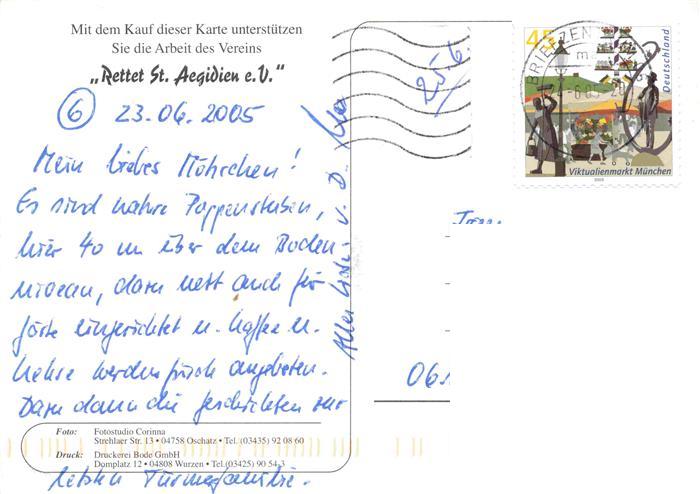 Mit dem Kauf dieser Karte unterstützen
Sie die Arbeit des Vereins
„Rettet St. Aegidien e.V."
6 23.06.2005
Mein liebes Möhrchen!
Es sind wahre Puppenstuben,
hier 40 m über dem Boden-
niveau, dazu nett auch für
Gäste eingerichtet u. Kaffee u.
Kekse werden frisch angeboten.
Dazu dann die Geschichten zur
letzten Türmerfamilie.
Alles Liebe v. D.
Foto: Fotostudio Corinna
Strehlaer Str. 13 • 04758 Oschatz • Tel. (03435) 92 08 60
Druck: Druckerei Bode GmbH
Domplatz 12 • 04808 Wurzen • Tel. (03425) 90 54-3
25.6.
BRIEFZEN
45
Deutschland
Viktualienmarkt München
2003
06